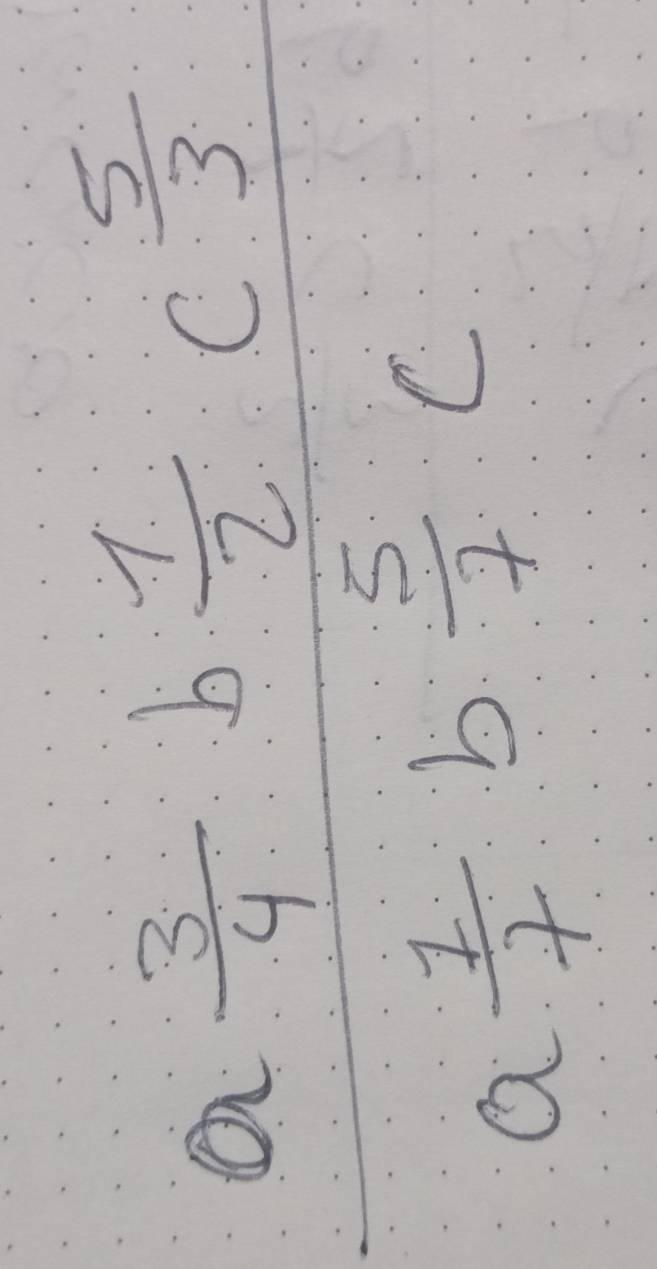 a 3/4 b 1/2 c 5/3
a 1/7 b 5/7 c